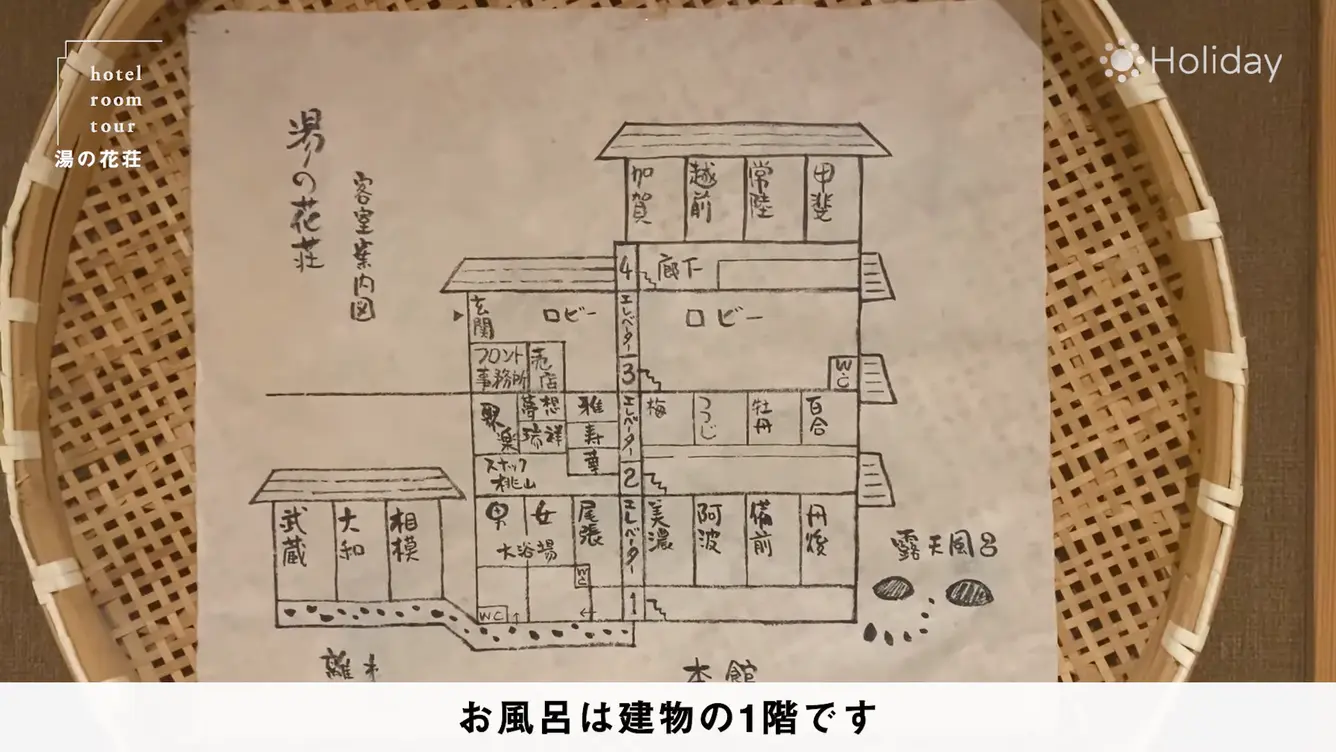 hotel
room
tour
湯の花荘
Holiday
湯の花荘
客室案内図
加賀
越前
常陸
甲斐
4
廊下
玄関
ロビー
エレベーター
ロビー
フロント
事務所
売店
3
WC
聚楽
夢想
瑞祥
雅
寿
華
エレベーター
梅
つつじ
牡丹
百合
スナック
桃山
2
武蔵
大和
相模
男
女
大浴場
尾張
エレベーター
美濃
阿波
備前
丹後
露天風呂
WC
WC
1
本館
お風呂は建物の1階です